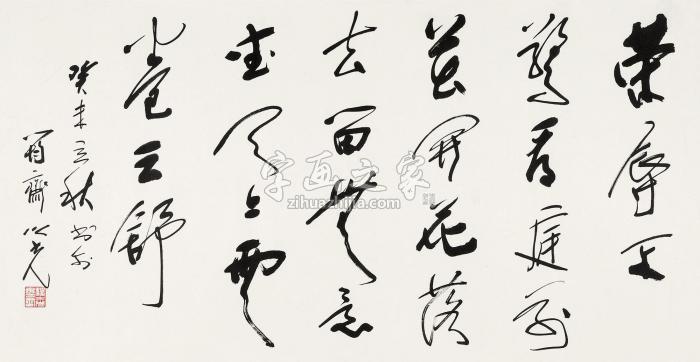 荣辱不
驚看庭前
花開花落
去留無意
望天上雲
卷云舒
癸未立秋书於
齋
字画之家
zihuazhijia.com